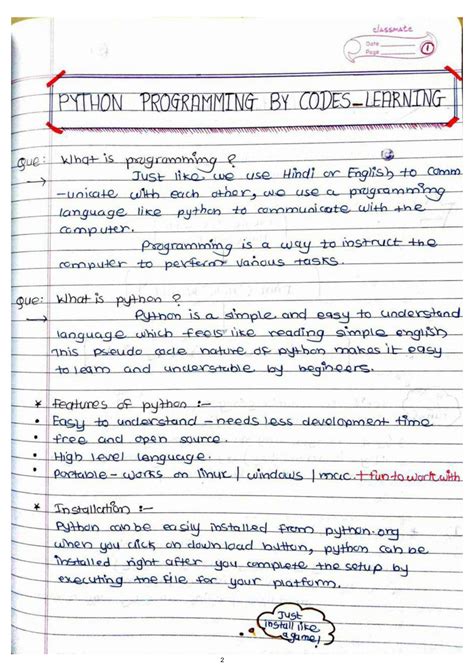 classmate
Date
Page 1
PYTHON PROGRAMMING BY CODES_LEARNING
Que: What is programming ?
→ Just like we use Hindi or English to Comm
-unicate with each other, we use a programming
language like python to communicate with the
computer.
Programming is a way to instruct the
computer to perform various tasks.
Que: What is python ?
→ Python is a simple and easy to understand
language which feels like reading simple english
This pseudo code nature of python makes it easy
to learn and understable by begineers.
* Features of python :-
• Easy to understand - needs less development time
• free and open source.
• High level language.
• Portable - works on linux | windows | mac. + fun to work with
* Installation :-
Python can be easily installed from python.org
when you click on download button, python can be
installed right after you complete the setup by
executing the file for your platform.
Just
install like
a game!
2